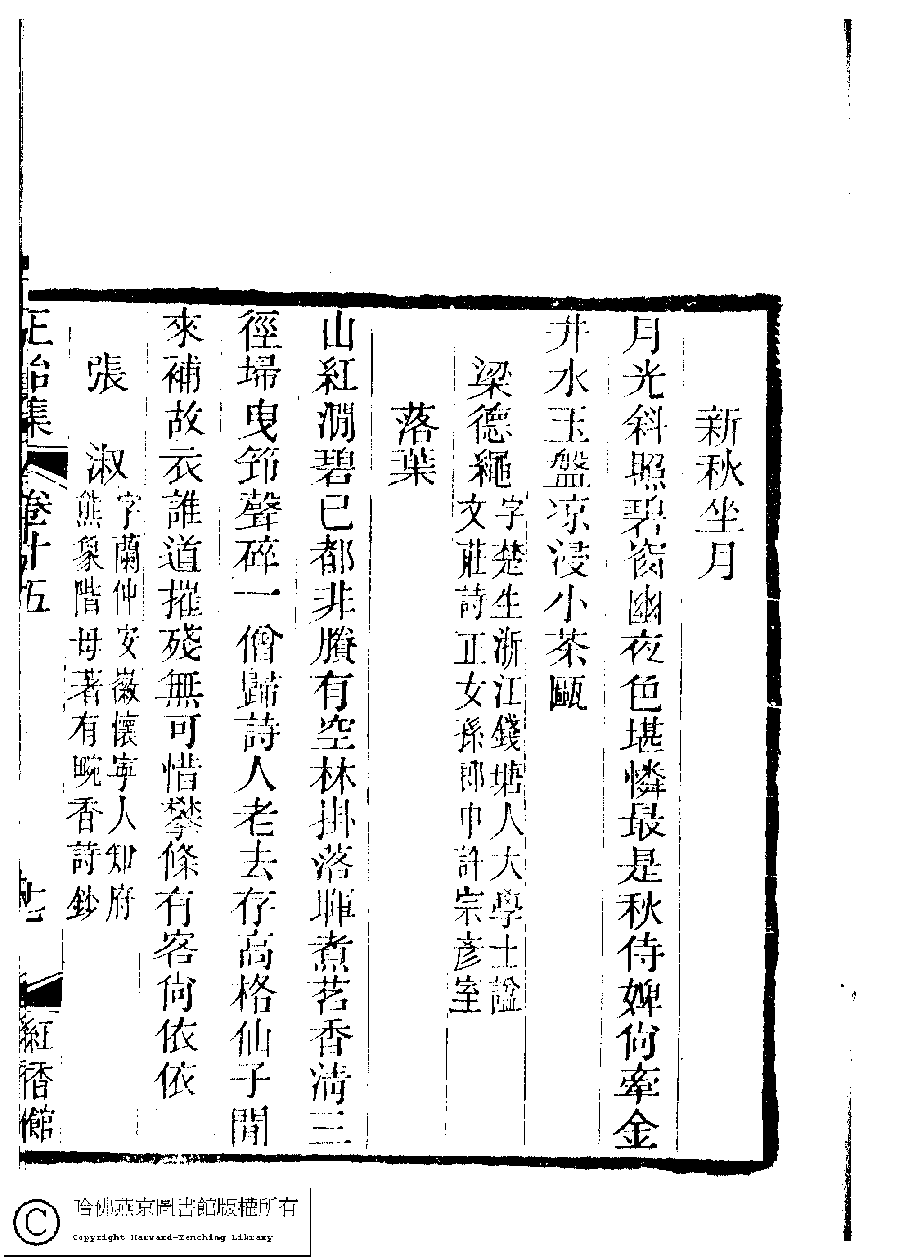 新秋坐月
月光斜照碧窗幽夜色堪憐最是秋侍婢尙牽金
井水玉盤凉浸小茶甌
梁德繩字楚生浙江錢塘人大學士諡
文莊詩正女孫郎中許宗彥室
落葉
山紅澗碧已都非賸有空林掛落暉煮茗香淸三
徑埽曳笻聲碎一僧歸詩人老去存高格仙子閒
來補故衣誰道摧殘無可惜攀條有客尙依依
張淑字蘭仲安徽懷寧人知府
熊象階母著有畹香詩鈔
正始集
卷十五
七
紅香館
哈佛燕京圖書館版權所有
Copyright Harvard-Yenching Library